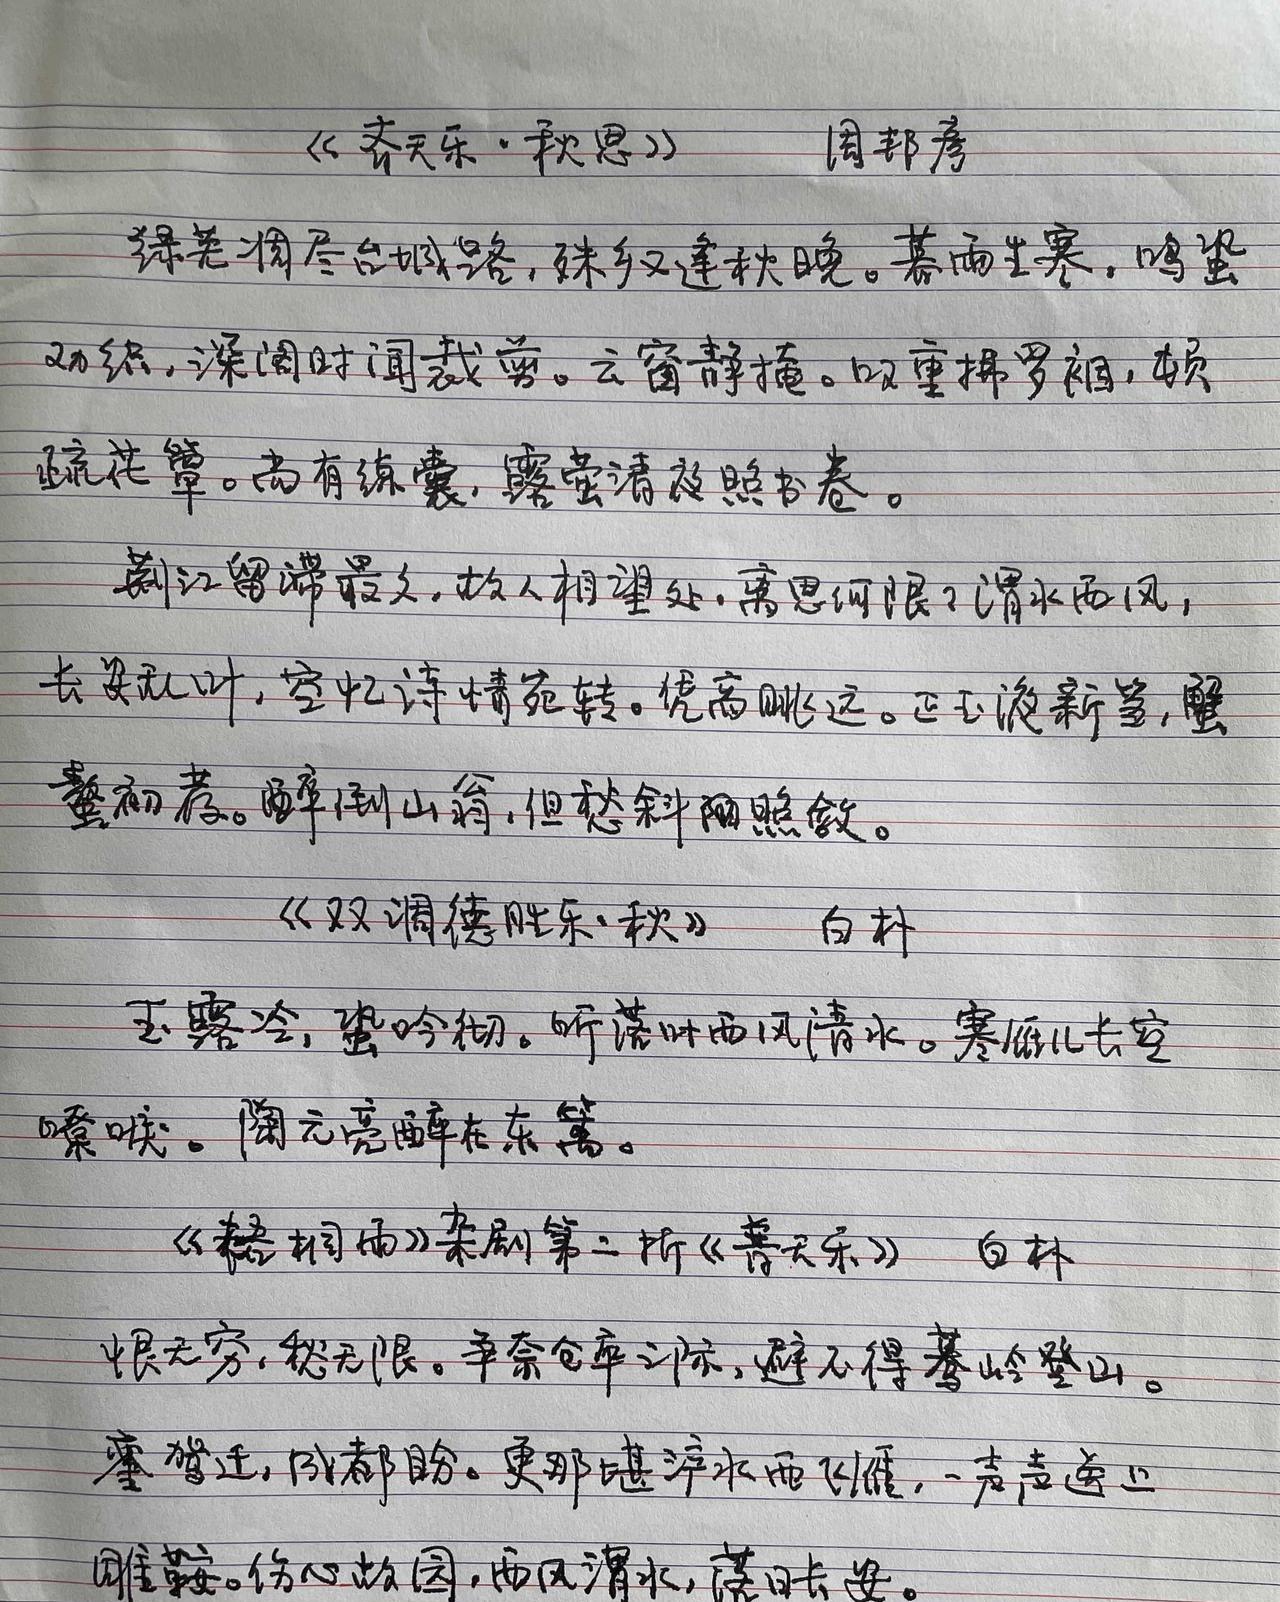 《齐天乐·秋思》 周邦彦
绿芜凋尽台城路，殊乡又逢秋晚。暮雨生寒，鸣蛩
劝织，深阁时闻裁剪。云窗静掩。叹重拂罗裀，顿
疏花簟。尚有綀囊，露萤清夜照书卷。
荆江留滞最久，故人相望处，离思何限？渭水西风，
长安乱叶，空忆诗情宛转。凭高眺远。正玉液新篘，蟹
螯初荐。醉倒山翁，但愁斜阳照敛。
《双调德胜乐·秋》 白朴
玉露冷，蛩吟彻。听落叶西风清水。寒雁儿长空
嘹唳。陶元亮醉在东篱。
《梧桐雨》杂剧第二折《普天乐》 白朴
恨无穷，愁无限。争奈仓卒之际，避不得蓦岭登山。
銮驾迁，成都盼。更那堪浐水西飞雁，一声声送上
雕鞍。伤心故园，西风渭水，落日长安。